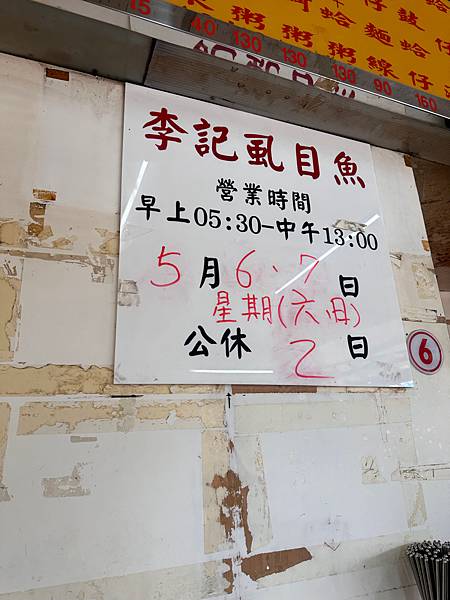 15 40 130 130 130 90 160
粥 粥 粥 線 仔
蛤 麵 蛤 仔
李記虱目魚
營業時間
早上05:30-中午13:00
5月6、7日
星期(六、日)
公休 2 日
6